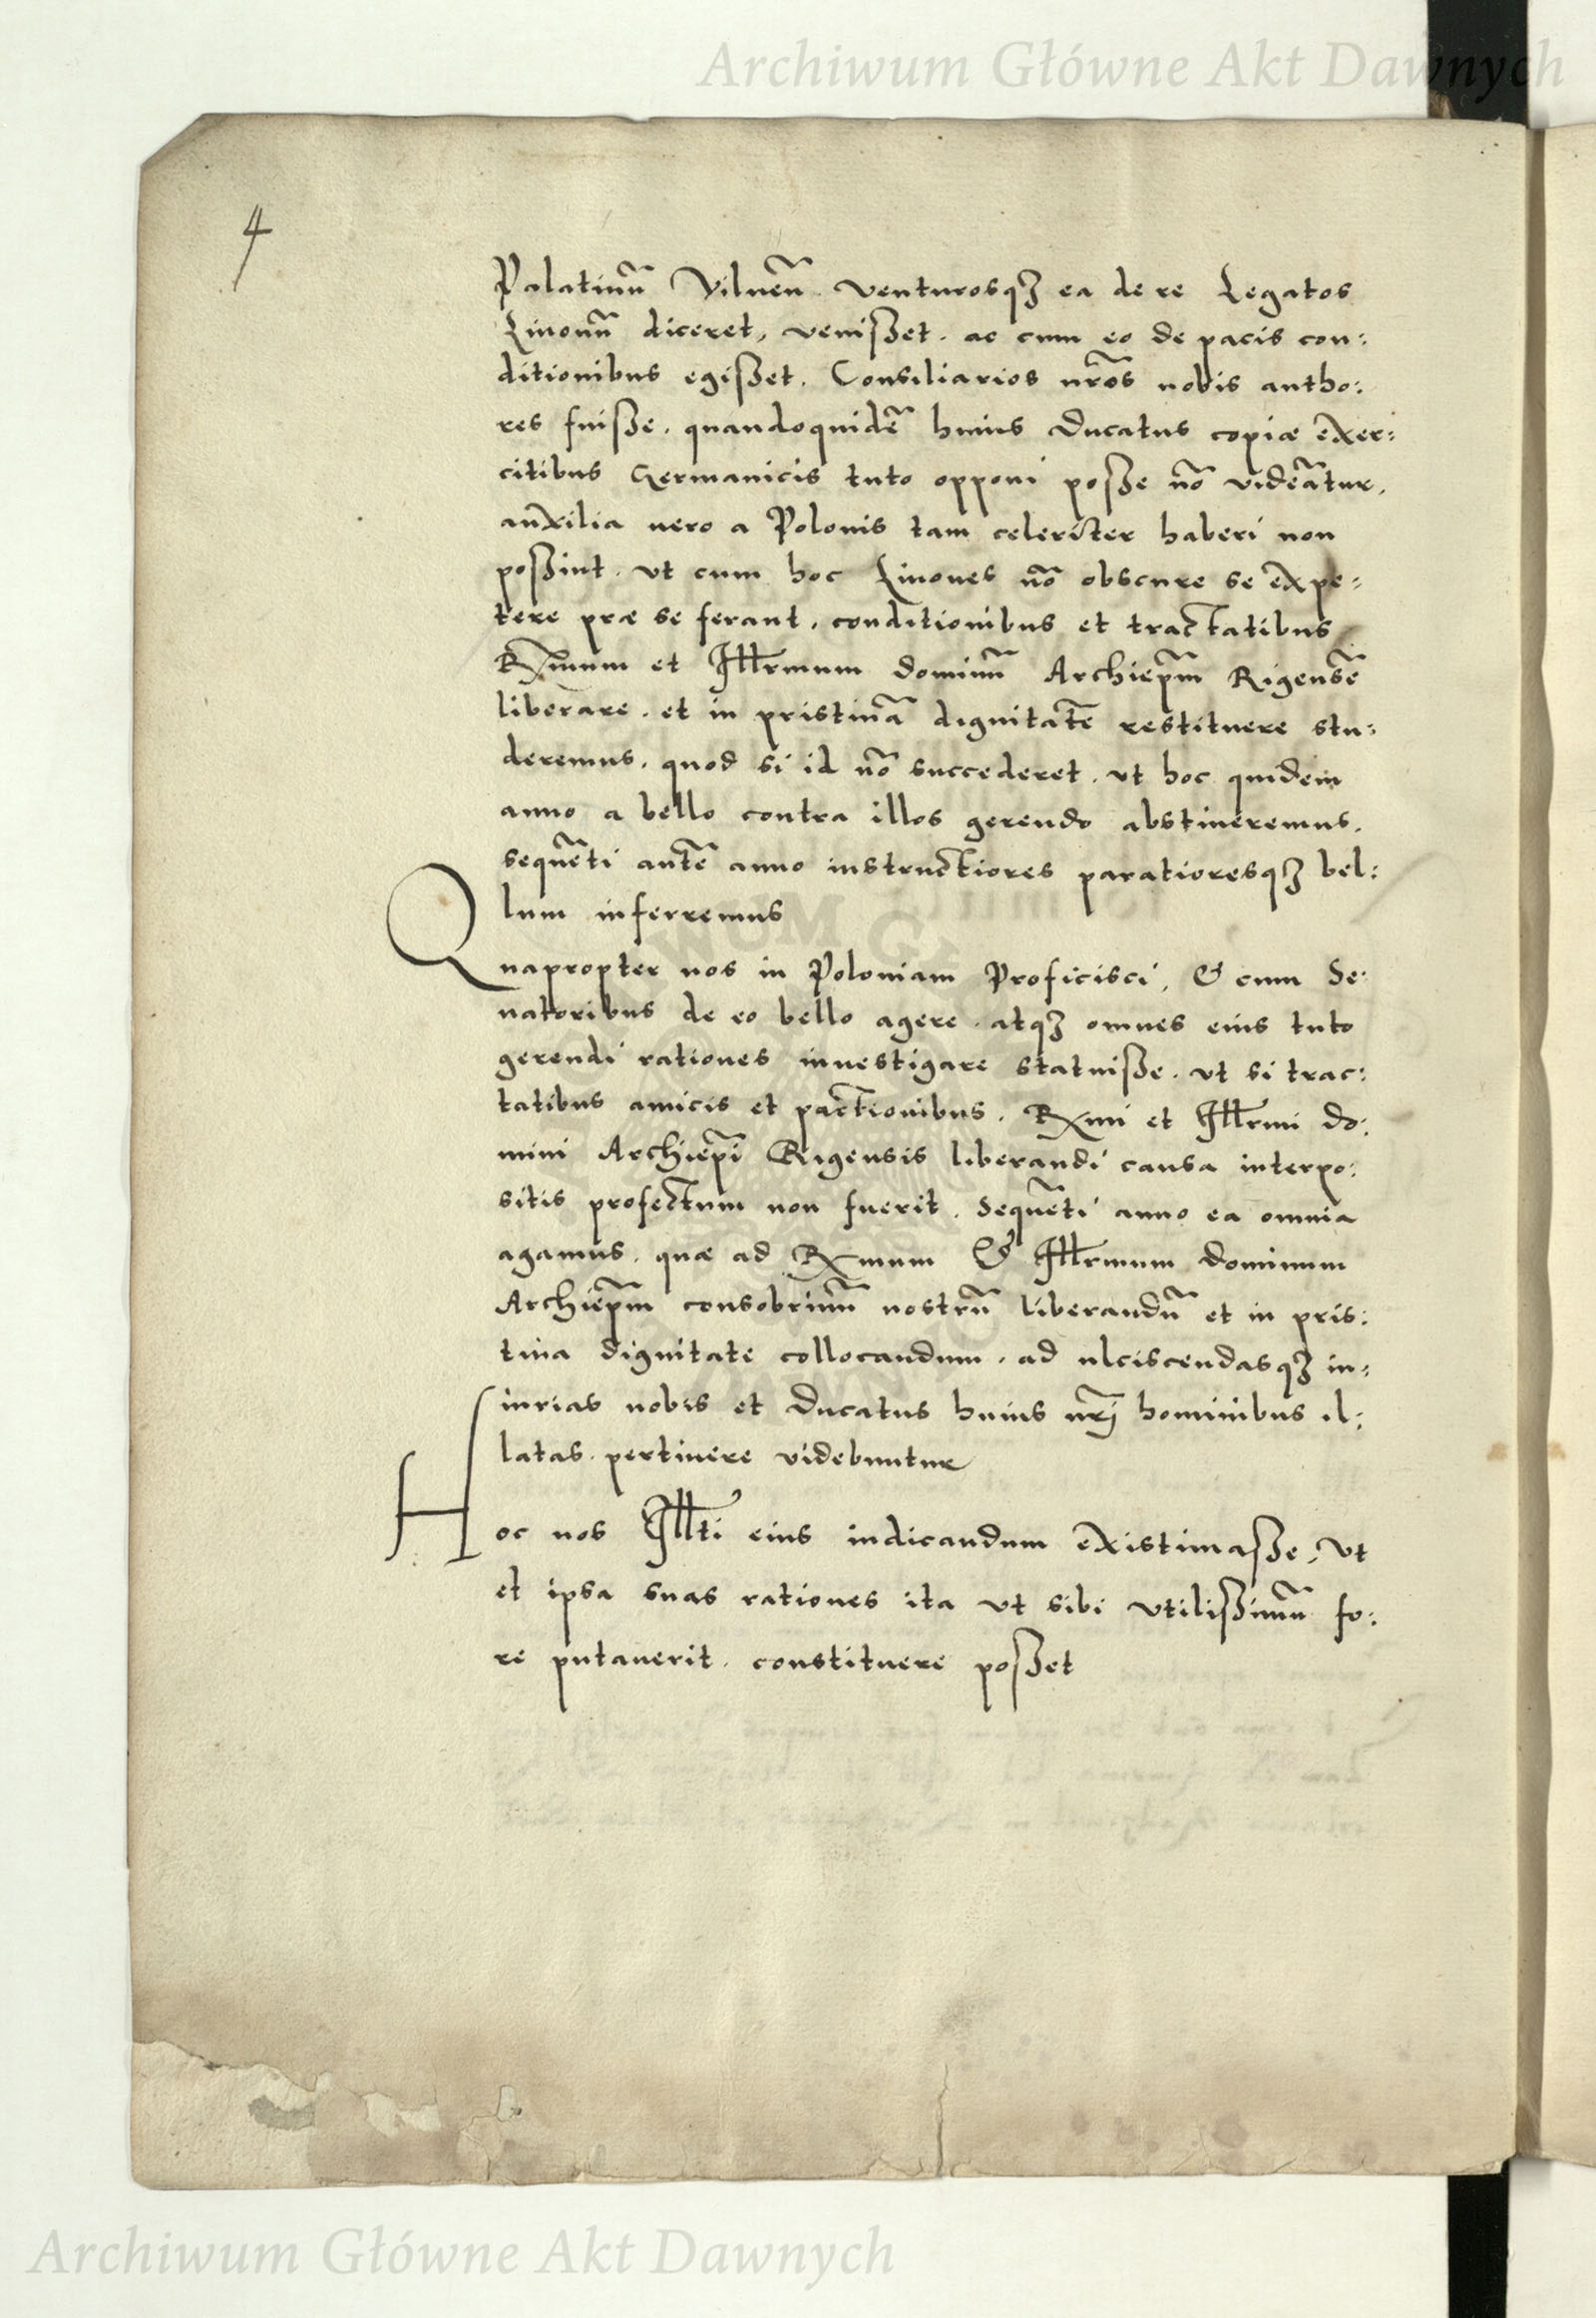 Archiwum Główne Akt Dawnych
4
Palatinū Vilneñ. venturosqȝ ea de re Legatos
Livonū diceret, venißet. ac cum eo de pacis con:
ditionibus egißet. Consiliarios nr̃os nobis autho:
res fuiße. quandoquidē huius Ducatus copiæ exer:
citibus Germanicis tuto opponi poße nõ videãtur,
auxilia vero a Polonis tam celeriter haberi non
poßint. vt cum hoc Livones nõ obscure se expe:
tere præ se ferant, conditionibus et tractatibus
Rxmum et Illrmum dominū Archiep̃m Rigensẽ
liberare. et in pristinã dignitatẽ restituere stu:
deremus. quod si id nõ succederet. vt hoc quidem
anno a bello contra illos gerendo abstineremus.
sequẽti autẽ anno instructiores paratioresqȝ bel:
lum inferremus
Quapropter nos in Poloniam Proficisci, & cum Se:
natoribus de eo bello agere. atqȝ omnes eius tuto
gerendi rationes investigare statuiße. vt si trac:
tatibus amicis et pactionibus. Rxmi et Illrmi do:
mini Archiep̃i Rigensis liberandi causa interpo:
sitis profectum non fuerit. Sequẽti anno ea omnia
agamus. quæ ad Rxmum & Illrmum dominum
Archiep̃m consobrinū nostrū liberandū et in pris:
tina dignitate collocandum. ad ulciscendasqȝ in:
iurias nobis et Ducatus huius nr̃j hominibus il:
latas. pertinere videbuntur
Hoc nos Illti eius indicandum existimaße, vt
et ipsa suas rationes ita vt sibi vtilißimū fo:
re putaverit. constituere poßet
Archiwum Główne Akt Dawnych